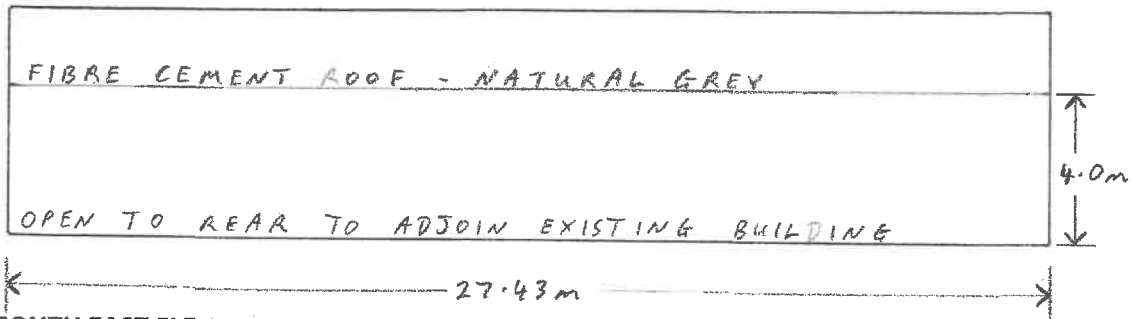 FIBRE CEMENT ROOF - NATURAL GREY
4.0m
OPEN TO REAR TO ADJOIN EXISTING BUILDING
27.43m